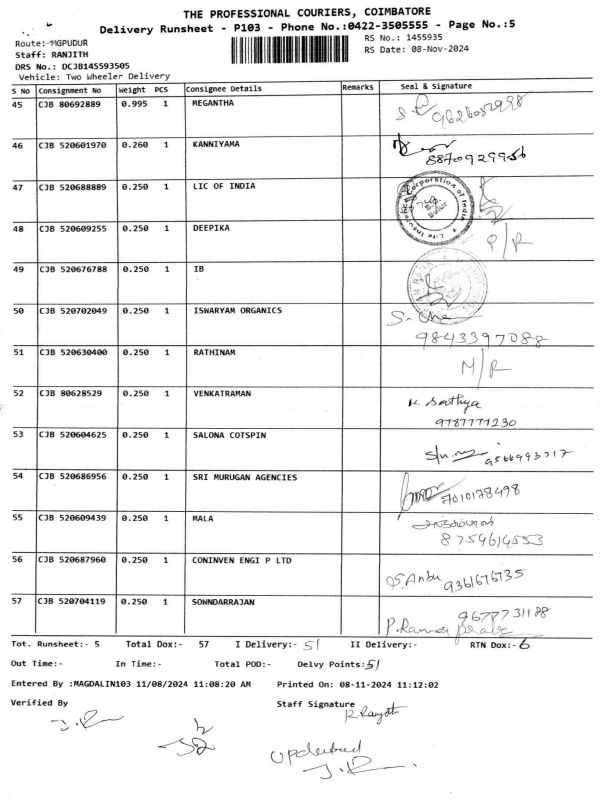 THE PROFESSIONAL COURIERS, COIMBATORE
Delivery Runsheet - P103 - Phone No.:0422-3505555 - Page No.:5
Route: MGPUDUR
RS No.: 1455935
Staff: RANJITH
RS Date: 08-Nov-2024
DRS No.: DCJB145593505
Vehicle: Two Wheeler Delivery
S No Consignment No Weight PCS Consignee Details Remarks Seal & Signature
45 CJB 80692889 0.995 1 MEGANTHA
46 CJB 520601970 0.260 1 KANNIYAMA
8870929956
47 CJB 520688889 0.250 1 LIC OF INDIA
48 CJB 520609255 0.250 1 DEEPIKA
P/R
49 CJB 520676788 0.250 1 IB
50 CJB 520702049 0.250 1 ISWARYAM ORGANICS
9843397088
51 CJB 520630400 0.250 1 RATHINAM
M/R
52 CJB 80628529 0.250 1 VENKATRAMAN K Sathya
9787777230
53 CJB 520604625 0.250 1 SALONA COTSPIN
9566993717
54 CJB 520686956 0.250 1 SRI MURUGAN AGENCIES
7010178498
55 CJB 520609439 0.250 1 MALA
8759614553
56 CJB 520687960 0.250 1 CONINVEN ENGI P LTD
S. Anbu 9361676735
57 CJB 520704119 0.250 1 SOWNDARRAJAN
9677731188
Tot. Runsheet:- 5 Total Dox:- 57 I Delivery:- 51 II Delivery:- RTN Dox:- 6
Out Time:- In Time:- Total POD:- Delvy Points:51
Entered By :MAGDALIN103 11/08/2024 11:08:20 AM Printed On: 08-11-2024 11:12:02
Verified By Staff Signature